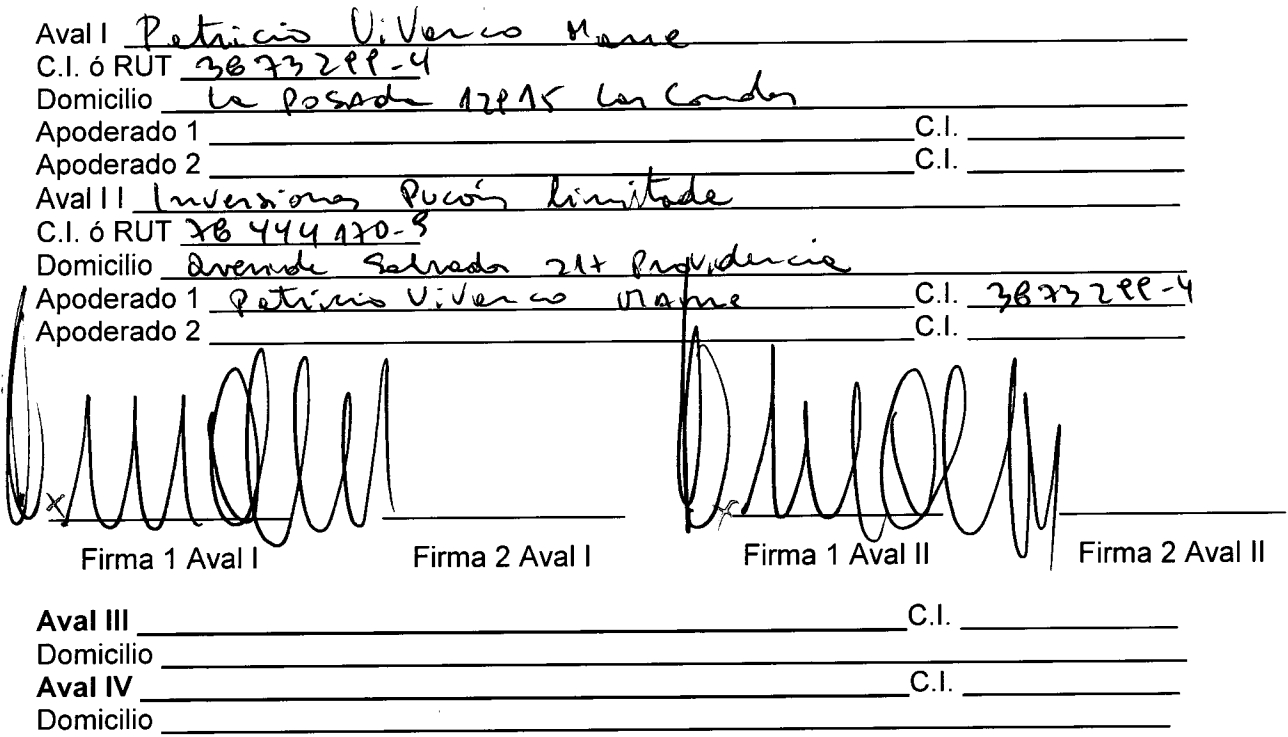 Aval I Patricio Vivanco
C.I. ó RUT
Domicilio La Posada Las Condes
Apoderado 1 C.I.
Apoderado 2 C.I.
Aval II Inversiones Pucón limitada
C.I. ó RUT 78 444 170-
Domicilio avenida Salvador Providencia
Apoderado 1 Patricio Vivanco C.I.
Apoderado 2 C.I.
Firma 1 Aval I Firma 2 Aval I Firma 1 Aval II Firma 2 Aval II
Aval III C.I.
Domicilio
Aval IV C.I.
Domicilio